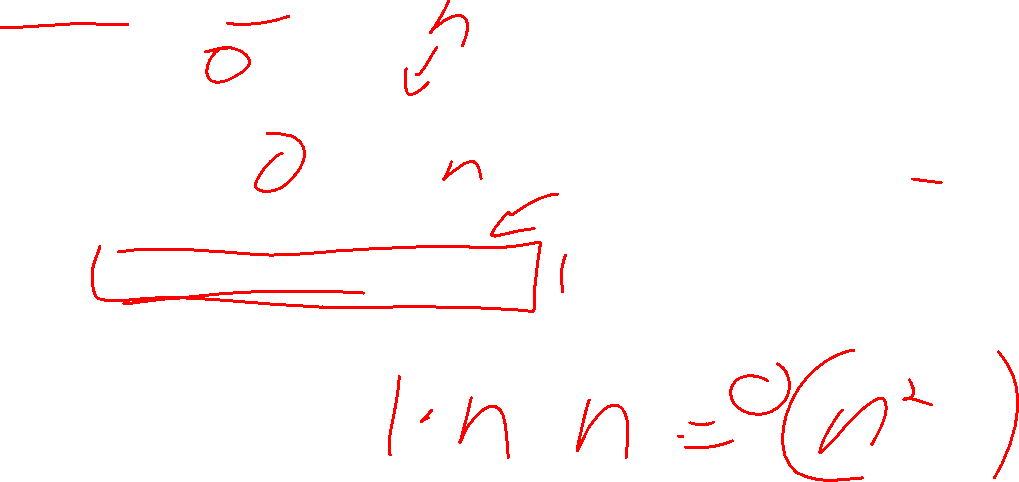 0 n
0 n
1
1 · n n = O(n²)